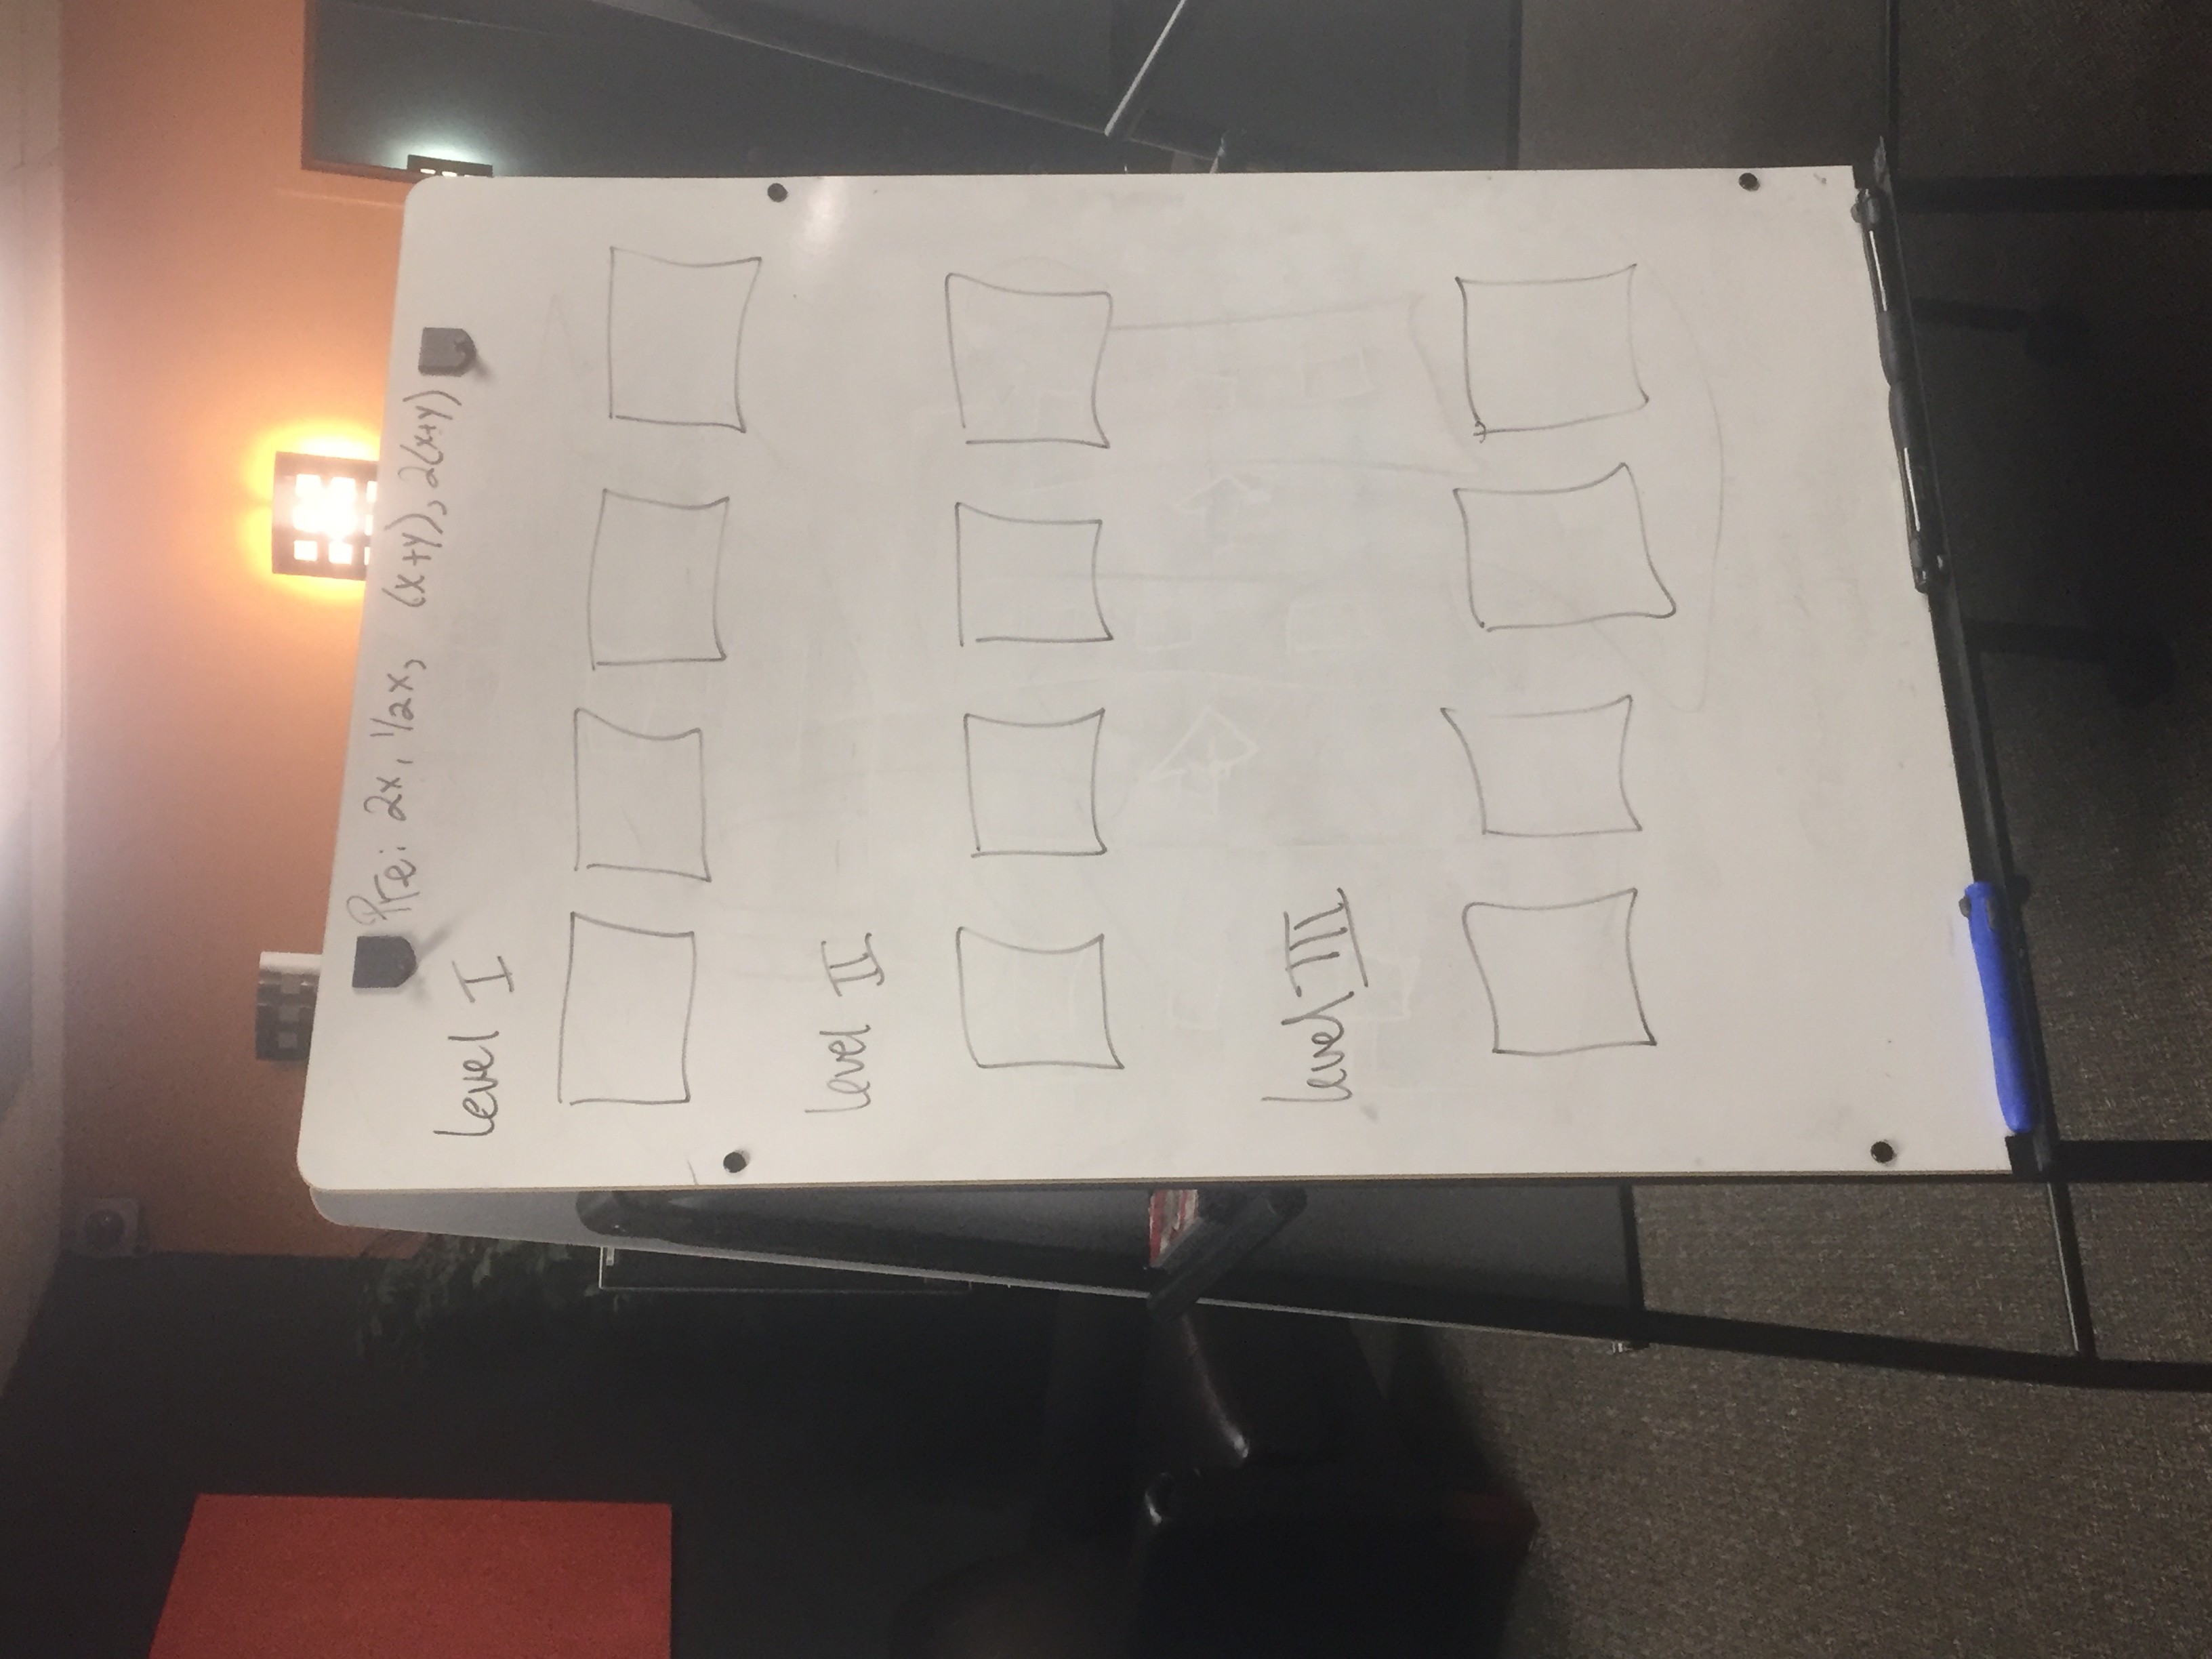 Pre: 2x, 1/2x, (x+y), 2(x+y)
Level I
Level II
Level III